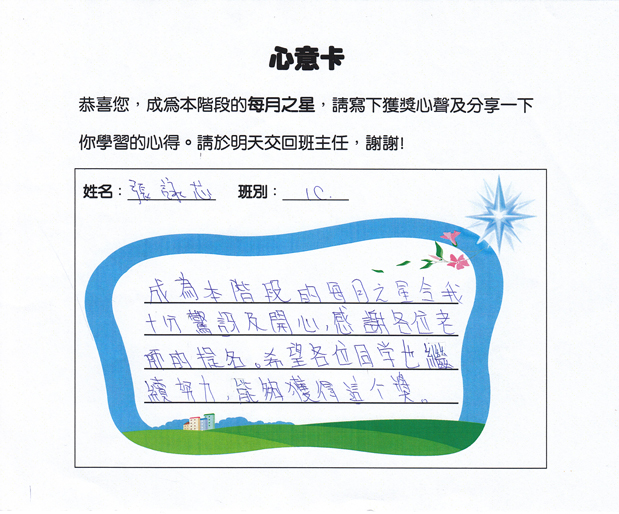 心意卡
恭喜您，成為本階段的每月之星，請寫下獲獎心聲及分享一下
你學習的心得。請於明天交回班主任，謝謝!
姓名：張詠芯 班別：1C.
成為本階段的每月之星令我
十份驚訝及開心，感謝各位老
師的提名。希望各位同學也繼
續努力，能夠獲得這个獎。